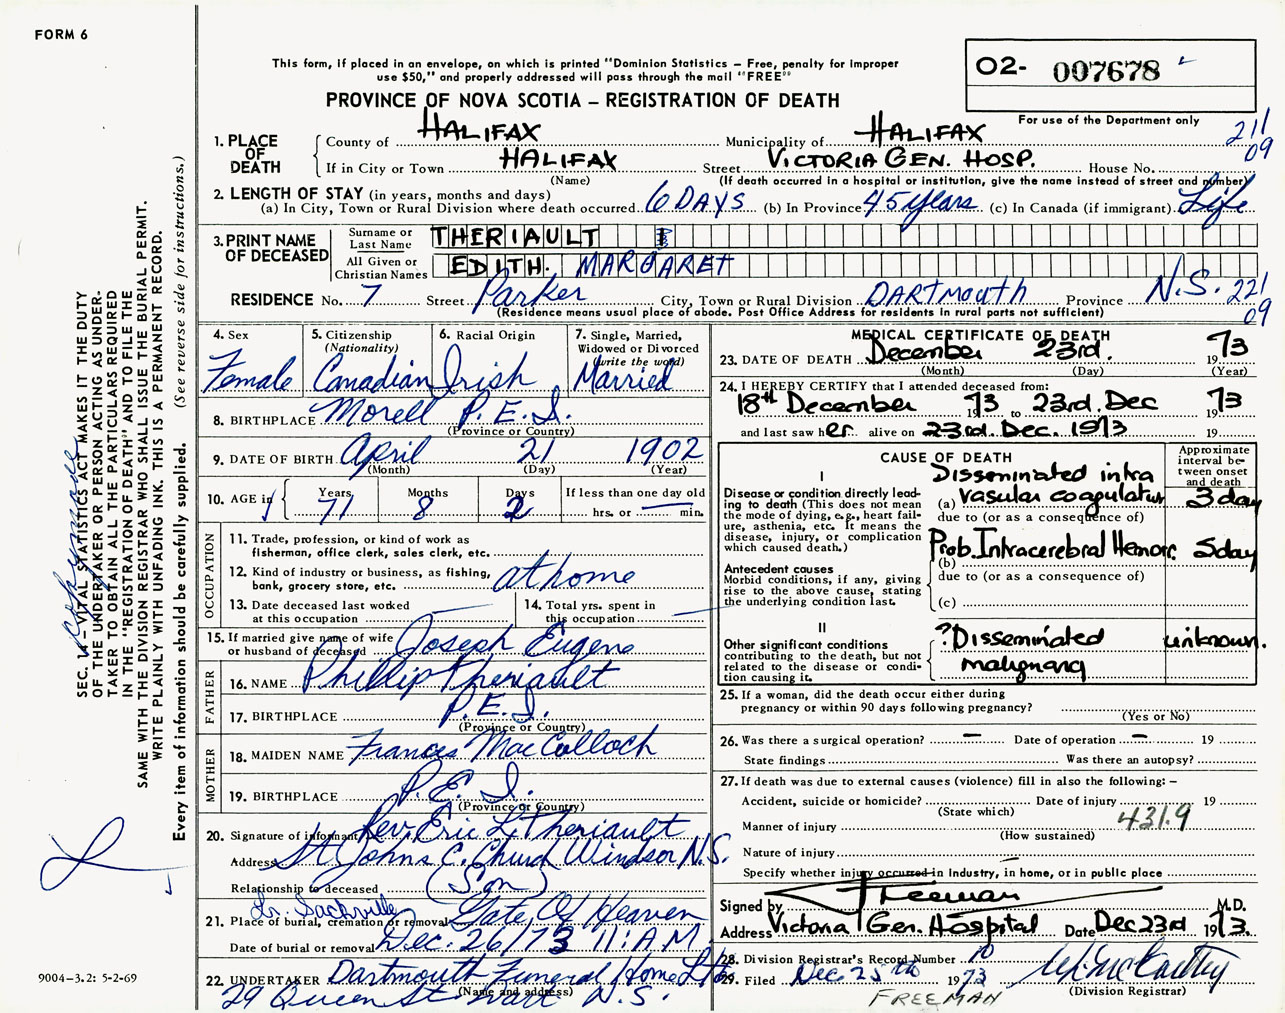 FORM 6
This form, if placed in an envelope, on which is printed "Dominion Statistics – Free, penalty for improper
use $50," and properly addressed will pass through the mail "FREE"
PROVINCE OF NOVA SCOTIA – REGISTRATION OF DEATH
O2- 007678
For use of the Department only
211
09
1. PLACE OF DEATH
County of HALIFAX Municipality of HALIFAX
If in City or Town HALIFAX Street VICTORIA GEN. HOSP. House No.
(Name) (If death occurred in a hospital or institution, give the name instead of street and number)
2. LENGTH OF STAY (in years, months and days)
(a) In City, Town or Rural Division where death occurred 6 DAYS (b) In Province 45 years (c) In Canada (if immigrant) Life
3. PRINT NAME OF DECEASED
Surname or Last Name THERIAULT
All Given or Christian Names EDITH. MARGARET
RESIDENCE No. 7 Street Parker City, Town or Rural Division DARTMOUTH Province N.S. 221
09
(Residence means usual place of abode. Post Office Address for residents in rural parts not sufficient)
4. Sex Female
5. Citizenship (Nationality) Canadian
6. Racial Origin Irish
7. Single, Married, Widowed or Divorced (write the word) Married
8. BIRTHPLACE Morell P.E.I.
(Province or Country)
9. DATE OF BIRTH April 21 1902
(Month) (Day) (Year)
10. AGE in Years 71 Months 8 Days 2 If less than one day old hrs. or min.
OCCUPATION
11. Trade, profession, or kind of work as
fisherman, office clerk, sales clerk, etc.
12. Kind of industry or business, as fishing,
bank, grocery store, etc. at home
13. Date deceased last worked
at this occupation
14. Total yrs. spent in
this occupation
15. If married give name of wife
or husband of deceased Joseph Eugene
FATHER
16. NAME Phillip Theriault
17. BIRTHPLACE P.E.I.
(Province or Country)
MOTHER
18. MAIDEN NAME Frances MacColloch
19. BIRTHPLACE P.E.I.
(Province or Country)
20. Signature of informant Rev. Eric L. Theriault
Address St Johns C. Church Windsor N.S.
Relationship to deceased (Son)
Lr. Sackville
21. Place of burial, cremation or removal Gate Of Heaven
Date of burial or removal Dec. 26/73 11:A.M
22. UNDERTAKER Dartmouth Funeral Home Ltd
(Name and address)
29 Queen St. Dart N.S.
MEDICAL CERTIFICATE OF DEATH
23. DATE OF DEATH December 23rd. 1973
(Month) (Day) (Year)
24. I HEREBY CERTIFY that I attended deceased from:
18th December 1973 to 23rd. Dec 1973
and last saw her alive on 23rd. Dec. 1973 19
CAUSE OF DEATH
Approximate interval between onset and death
I
Disease or condition directly leading to death (This does not mean the mode of dying, e.g., heart failure, asthenia, etc. It means the disease, injury, or complication which caused death.)
Disseminated intra
(a) vascular coagulatun 3 day
due to (or as a consequence of)
Antecedent causes
Morbid conditions, if any, giving rise to the above cause, stating the underlying condition last.
Prob. Intracerebral Hemorr 5day
(b)
due to (or as a consequence of)
(c)
II
Other significant conditions
contributing to the death, but not related to the disease or condition causing it.
?Disseminated unknown.
malignancy
25. If a woman, did the death occur either during
pregnancy or within 90 days following pregnancy?
(Yes or No)
26. Was there a surgical operation? – Date of operation – 19
State findings Was there an autopsy?
27. If death was due to external causes (violence) fill in also the following: –
Accident, suicide or homicide? Date of injury 19
(State which)
Manner of injury 431.9
(How sustained)
Nature of injury
Specify whether injury occurred in Industry, in home, or in public place
Signed by Freeman M.D.
Address Victoria Gen. Hospital Date Dec 23rd 1973.
28. Division Registrar's Record Number 10
29. Filed Dec 25th 1973
(Division Registrar)
FREEMAN
SEC. 14 – VITAL STATISTICS ACT MAKES IT THE DUTY
OF THE UNDERTAKER OR PERSON ACTING AS UNDER-
TAKER TO OBTAIN ALL THE PARTICULARS REQUIRED
IN THE "REGISTRATION OF DEATH" AND TO FILE THE
SAME WITH THE DIVISION REGISTRAR WHO SHALL ISSUE THE BURIAL PERMIT.
WRITE PLAINLY WITH UNFADING INK. THIS IS A PERMANENT RECORD.
Every item of information should be carefully supplied. (See reverse side for instructions.)
9004–3.2: 5-2-69